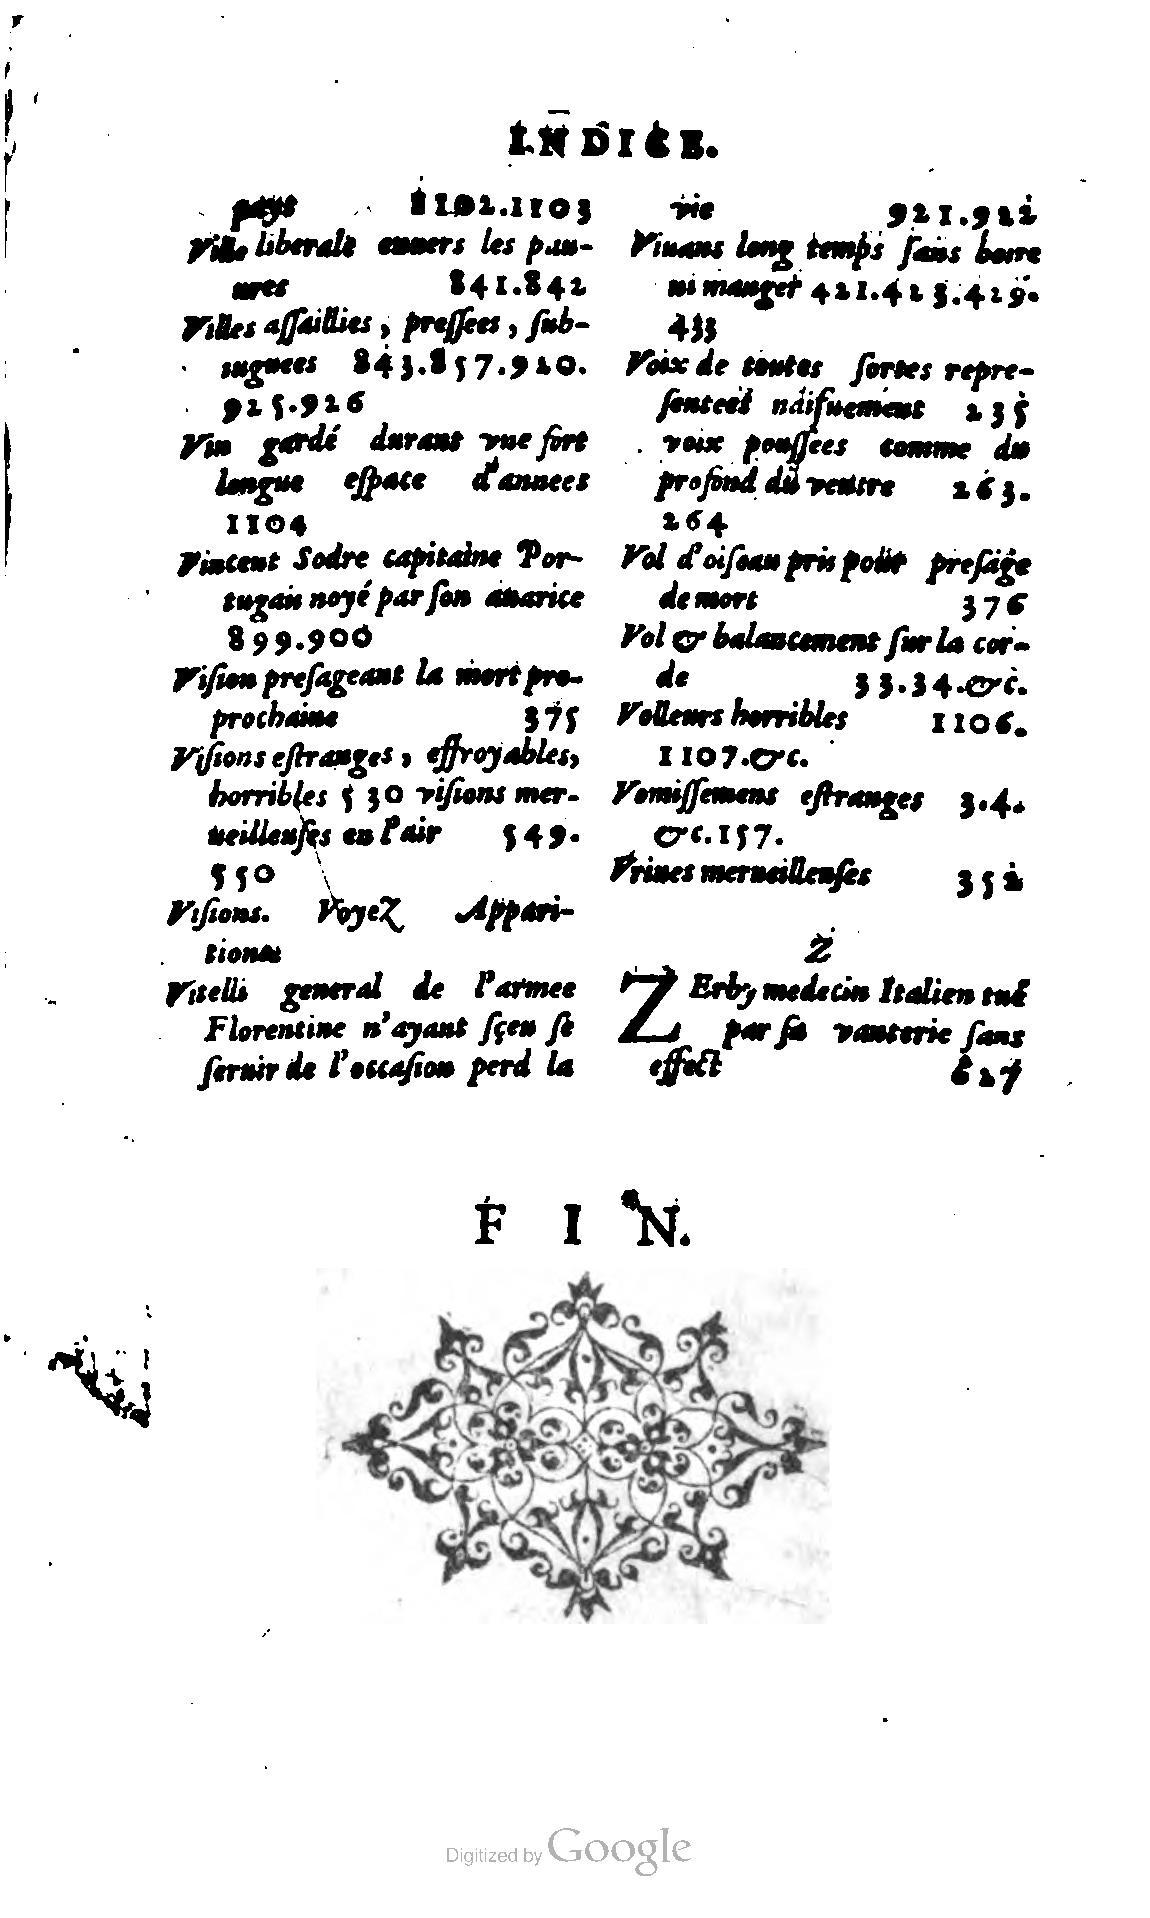 INDICE.
pays 1102.1103
Ville liberale enuers les pau-
ures 841.842
Villes aſſaillies, preſſees, ſub-
iuguees 843.857.920.
925.926
Vin gardé durant vne fort
longue eſpace d'annees
1104
Vincent Sodre capitaine Por-
tugais noyé par ſon auarice
899.900
Viſion preſageant la mort pro-
prochaine 375
Viſions eſtranges, effroyables,
horribles 530 viſions mer-
ueilleuſes en l'air 549.
550
Viſions. Voyez Appari-
tions
Vitelli general de l'armee
Florentine n'ayant ſçeu ſe
ſeruir de l'occaſion perd la
vie 921.922
Viuans long temps ſans boire
ni manger 421.423.429.
433
Voix de toutes ſortes repre-
ſentees naifuement 235
voix pouſſees comme du
profond du ventre 263.
264
Vol d'oiſeau pris pour preſage
de mort 376
Vol & balancement ſur la cor-
de 33.34.&c.
Volleurs horribles 1106.
1107.&c.
Vomiſſemens eſtranges 3.4.
&c.157.
Vrines merueilleuſes 352
Z
ZErby medecin Italien tué
par ſa vanterie ſans
effect 627
FIN.
Digitized by Google